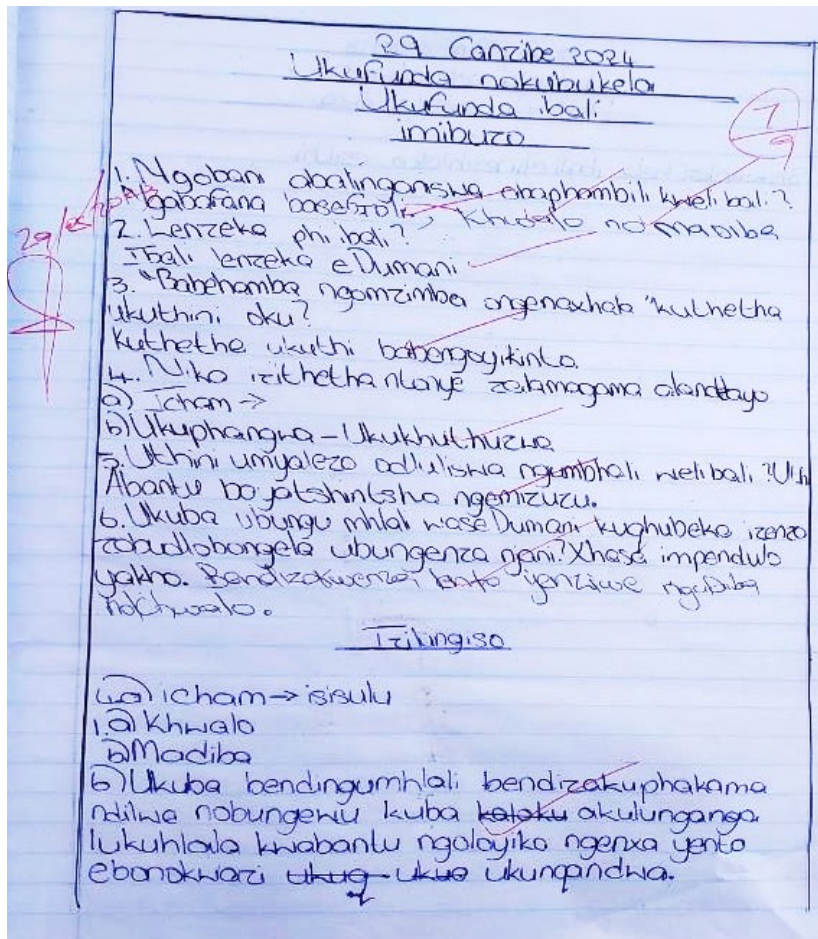 29 Canzibe 2024
Ukufunda nokubukela
Ukufunda ibali
imibuzo
7/9
1. Ngobani abalinganiswa abaphambili kweli bali?
Ngabafana basefitoli, Khwalo no Madiba
2. Lenzeka phi ibali?
Ibali lenzeka eDumani
3. "Babehamba ngomzimba ongenaxhala" kuthetha
ukuthini oku?
Kuthethe ukuthi babengoyikinto
4. Nika izithetha ntonye zalamagama alandelayo
a) Icham →
b) Ukuphangwa - Ukukhuthuzwa
5. Uthini umyalezo odluliswa ngumbhali welibali? Uth
Abantu bayatshintsha ngemizuzu.
6. Ukuba ubungu mhlali waseDumani kuqhubeka izenzo
zobudlobongela ubungenza njani? Xhasa impendulo
yakho. Bendizakwenza into yenziwe nguDiba
noKhwalo.
Izilungiso
4a) icham → isisulu
1. a) Khwalo
b) Madiba
6) Ukuba bendingumhlali bendizakuphakama
ndilwe nobungewu kuba kaloku akulunganga
lukuhlala kwabantu ngoloyiko ngenxa yento
ebonokwazi ukuq ukuq ukunqandwa.